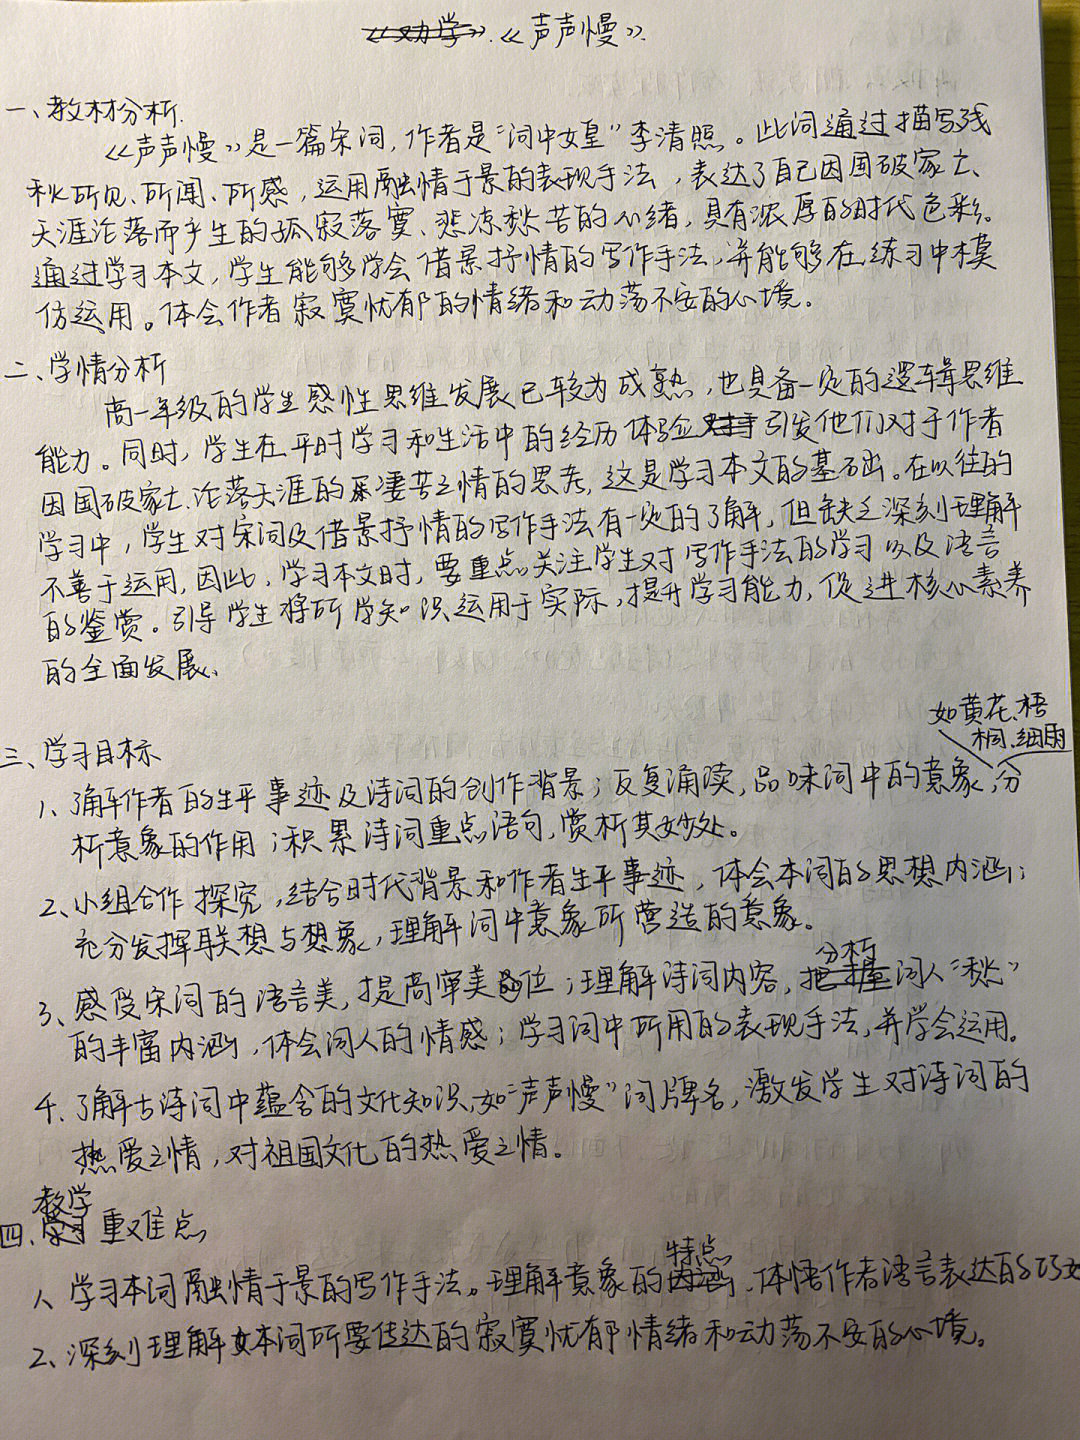 《劝学》.《声声慢》.
一、教材分析.
《声声慢》是一篇宋词,作者是"词中女皇"李清照。此词通过描写残
秋所见、所闻、所感,运用融情于景的表现手法,表达了自己因国破家亡、
天涯沦落而产生的孤寂落寞、悲凉愁苦的心绪,具有浓厚的时代色彩。
通过学习本文,学生能够学会借景抒情的写作手法,并能够在练习中模
仿运用。体会作者寂寞忧郁的情绪和动荡不安的心境.
二、学情分析
高一年级的学生感性思维发展已较为成熟,也具备一定的逻辑思维
能力。同时,学生在平时学习和生活中的经历体验引发他们对于作者
因国破家亡、沦落天涯的凄苦之情的思考,这是学习本文的基础。在以往的
学习中,学生对宋词及借景抒情的写作手法有一定的了解,但缺乏深刻理解
不善于运用,因此,学习本文时,要重点关注学生对写作手法的学习以及语言
的鉴赏。引导学生将所学知识运用于实际,提升学习能力,促进核心素养
的全面发展、
如黄花、梧
桐、细雨
三、学习目标
1、了解作者的生平事迹及诗词的创作背景;反复诵读,品味词中的意象,分
析意象的作用;积累诗词重点语句,赏析其妙处。
2、小组合作探究,结合时代背景和作者生平事迹,体会本词的思想内涵;
充分发挥联想与想象,理解词中意象所营造的意象。
分析
3、感受宋词的语言美,提高审美品位;理解诗词内容,把握词人"愁"
的丰富内涵,体会词人的情感;学习词中所用的表现手法,并学会运用.
4、了解古诗词中蕴含的文化知识,如"声声慢"词牌名,激发学生对诗词的
热爱之情,对祖国文化的热爱之情。
教学
四、学习重难点
特点
1、学习本词融情于景的写作手法。理解意象的内涵,体悟作者语言表达的巧妙
2、深刻理解本词所要传达的寂寞忧郁情绪和动荡不安的心境。